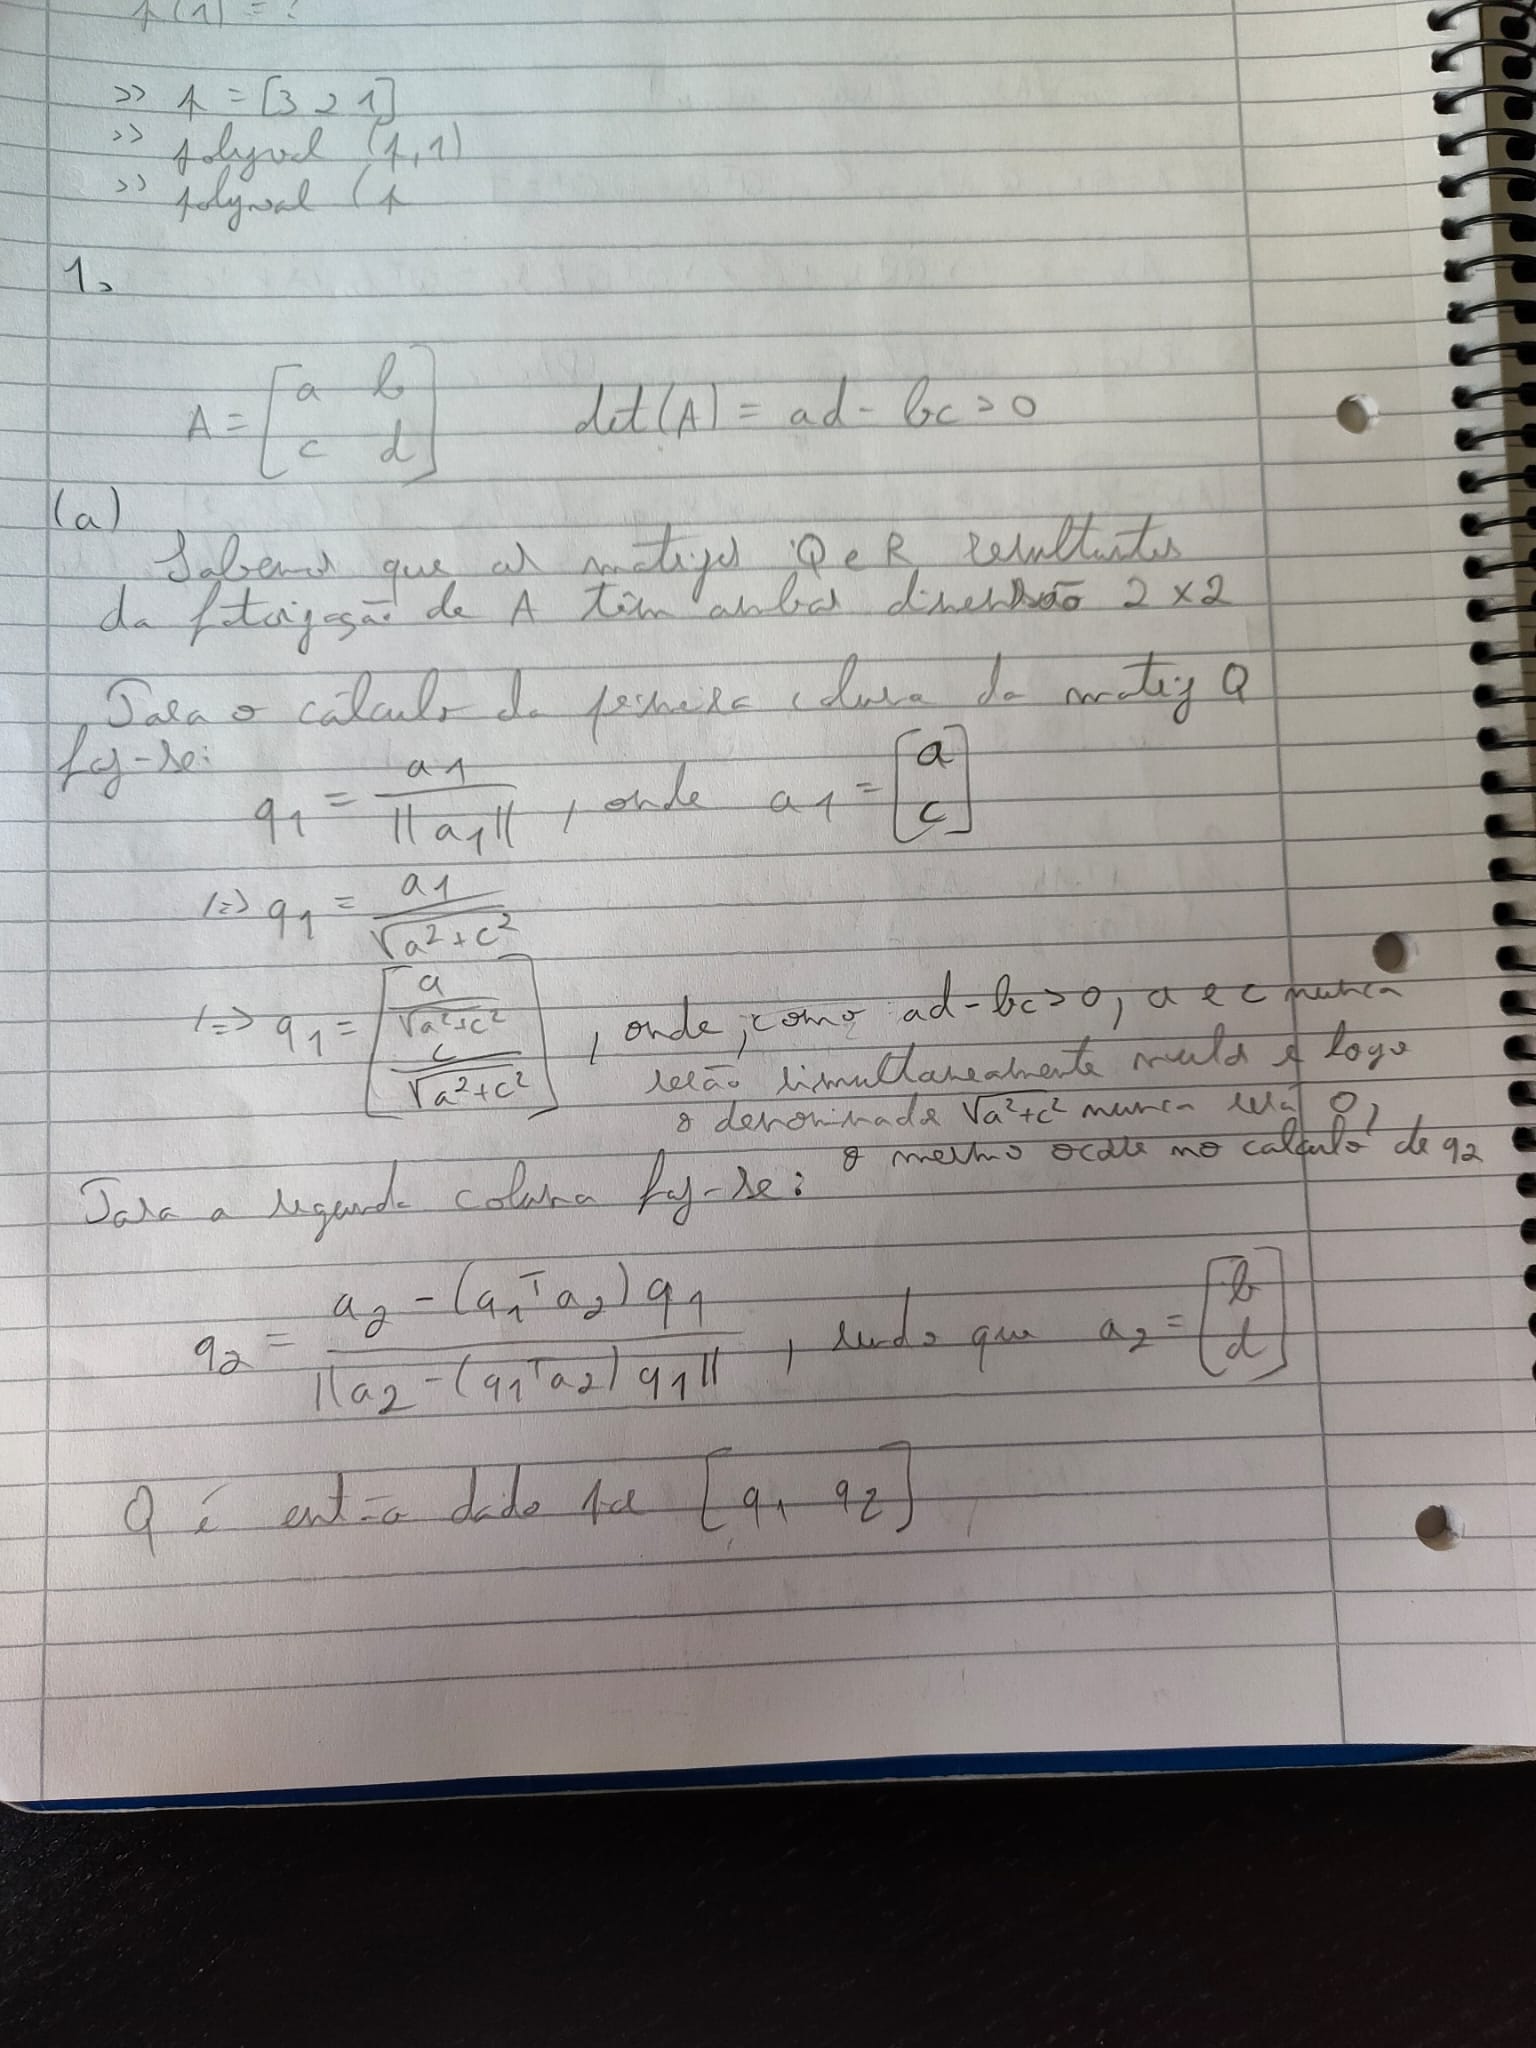 p(1) = ?
>> p = [3 2 1]
>> polyval (p,1)
>> polyval (p
1.
A = [a b; c d] det(A) = ad - bc > 0
(a)
Sabemos que as matrizes Q e R resultantes
da fatorização de A têm ambas dimensão 2 x 2
Para o cálculo da primeira coluna da matriz Q
faz-se:
q1 = a1 / ||a1|| , onde a1 = [a; c]
(=) q1 = a1 / √(a²+c²)
(=) q1 = [a/√(a²+c²); c/√(a²+c²)] , onde, como ad - bc > 0, a e c nunca
serão simultaneamente nulos e logo
o denominador √(a²+c²) nunca será 0,
o mesmo ocorre no calculo de q2
Para a segunda coluna faz-se:
q2 = (a2 - (q1ᵀ a2) q1) / ||a2 - (q1ᵀ a2) q1|| , sendo que a2 = [b; d]
Q é então dado por [q1 q2]